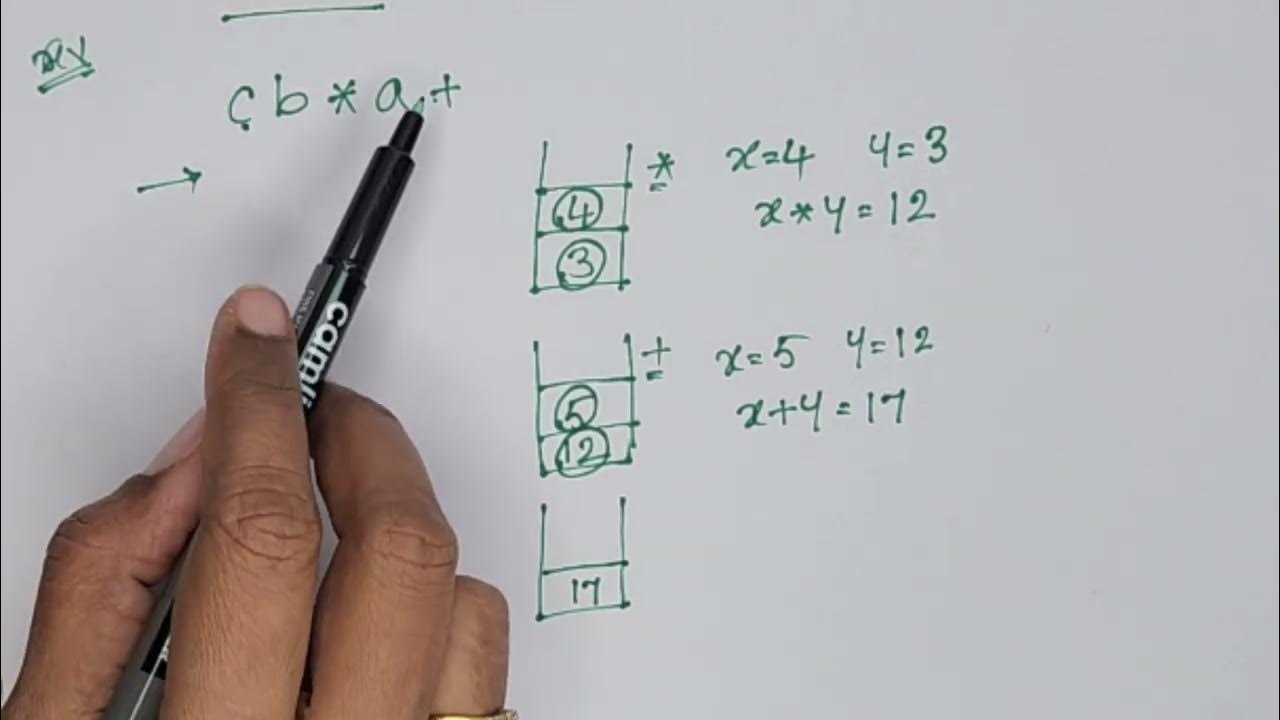 c b * a +
4 * x=4 y=3
3 x*y=12
5 + x=5 y=12
12 x+y=17
17
cam